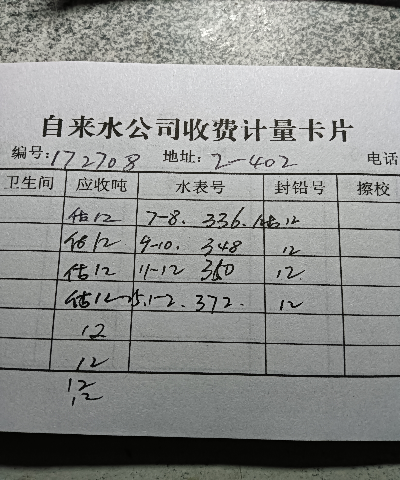 自来水公司收费计量卡片
编号:172708 地址:2-402 电话
卫生间 应收吨 水表号 封铅号 擦校
估12 7-8. 336. 估12
估12 9-10. 348 12
估12 11-12 360 12.
估12 25.1-2. 372. 12
12
12
12
12